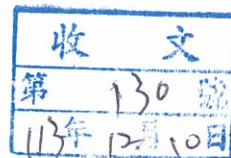 收文
第 130 號
113年 12月 10日